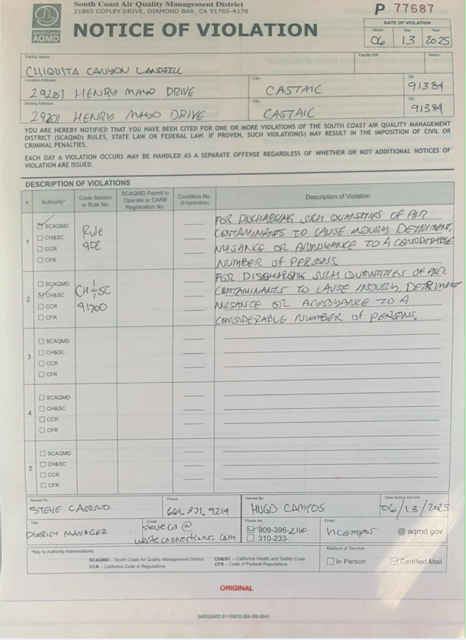 South Coast Air Quality Management District
21865 COPLEY DRIVE, DIAMOND BAR, CA 91765-4178
South Coast
AQMD
NOTICE OF VIOLATION
P 77687
DATE OF VIOLATION
Month Day Year
06 13 2025
Facility Name
Facility ID# Sector
CHIQUITA CANYON LANDFILL
Location Address City Zip
29201 HENRY MAYO DRIVE CASTAIC 91384
Mailing Address City Zip
29201 HENRY MAYO DRIVE CASTAIC 91384
YOU ARE HEREBY NOTIFIED THAT YOU HAVE BEEN CITED FOR ONE OR MORE VIOLATIONS OF THE SOUTH COAST AIR QUALITY MANAGEMENT
DISTRICT (SCAQMD) RULES, STATE LAW OR FEDERAL LAW. IF PROVEN, SUCH VIOLATION(S) MAY RESULT IN THE IMPOSITION OF CIVIL OR
CRIMINAL PENALTIES.
EACH DAY A VIOLATION OCCURS MAY BE HANDLED AS A SEPARATE OFFENSE REGARDLESS OF WHETHER OR NOT ADDITIONAL NOTICES OF
VIOLATION ARE ISSUED.
DESCRIPTION OF VIOLATIONS
# Authority* Code Section or Rule No. SCAQMD Permit to Operate or CARB Registration No. Condition No. (If Applicable) Description of Violation
1
SCAQMD
CH&SC
CCR
CFR
Rule
402
FOR DISCHARGING SUCH QUANTITIES OF AIR
CONTAMINANTS TO CAUSE INJURY, DETRIMENT,
NUISANCE OR ANNOYANCE TO A CONSIDERABLE
NUMBER OF PERSONS
2
SCAQMD
CH&SC
CCR
CFR
CH&SC
41700
FOR DISCHARGING SUCH QUANTITIES OF AIR
CONTAMINANTS TO CAUSE INJURY, DETRIMENT
NUISANCE OR ANNOYANCE TO A
CONSIDERABLE NUMBER OF PERSONS.
3
SCAQMD
CH&SC
CCR
CFR
4
SCAQMD
CH&SC
CCR
CFR
5
SCAQMD
CH&SC
CCR
CFR
Served To: Phone: Served By: Date Notice Served:
STEVE CASSULO 661.371.9214 HUGO CAMPOS 06/13/2025
Title: Email: Phone No: Email:
DISTRICT MANAGER
909-396-
310-233-
hcampos @ aqmd.gov
wasteconnections.com
*Key to Authority Abbreviations:
SCAQMD – South Coast Air Quality Management District CH&SC – California Health and Safety Code
CCR – California Code of Regulations CFR – Code of Federal Regulations
Method of Service:
In Person Certified Mail
ORIGINAL